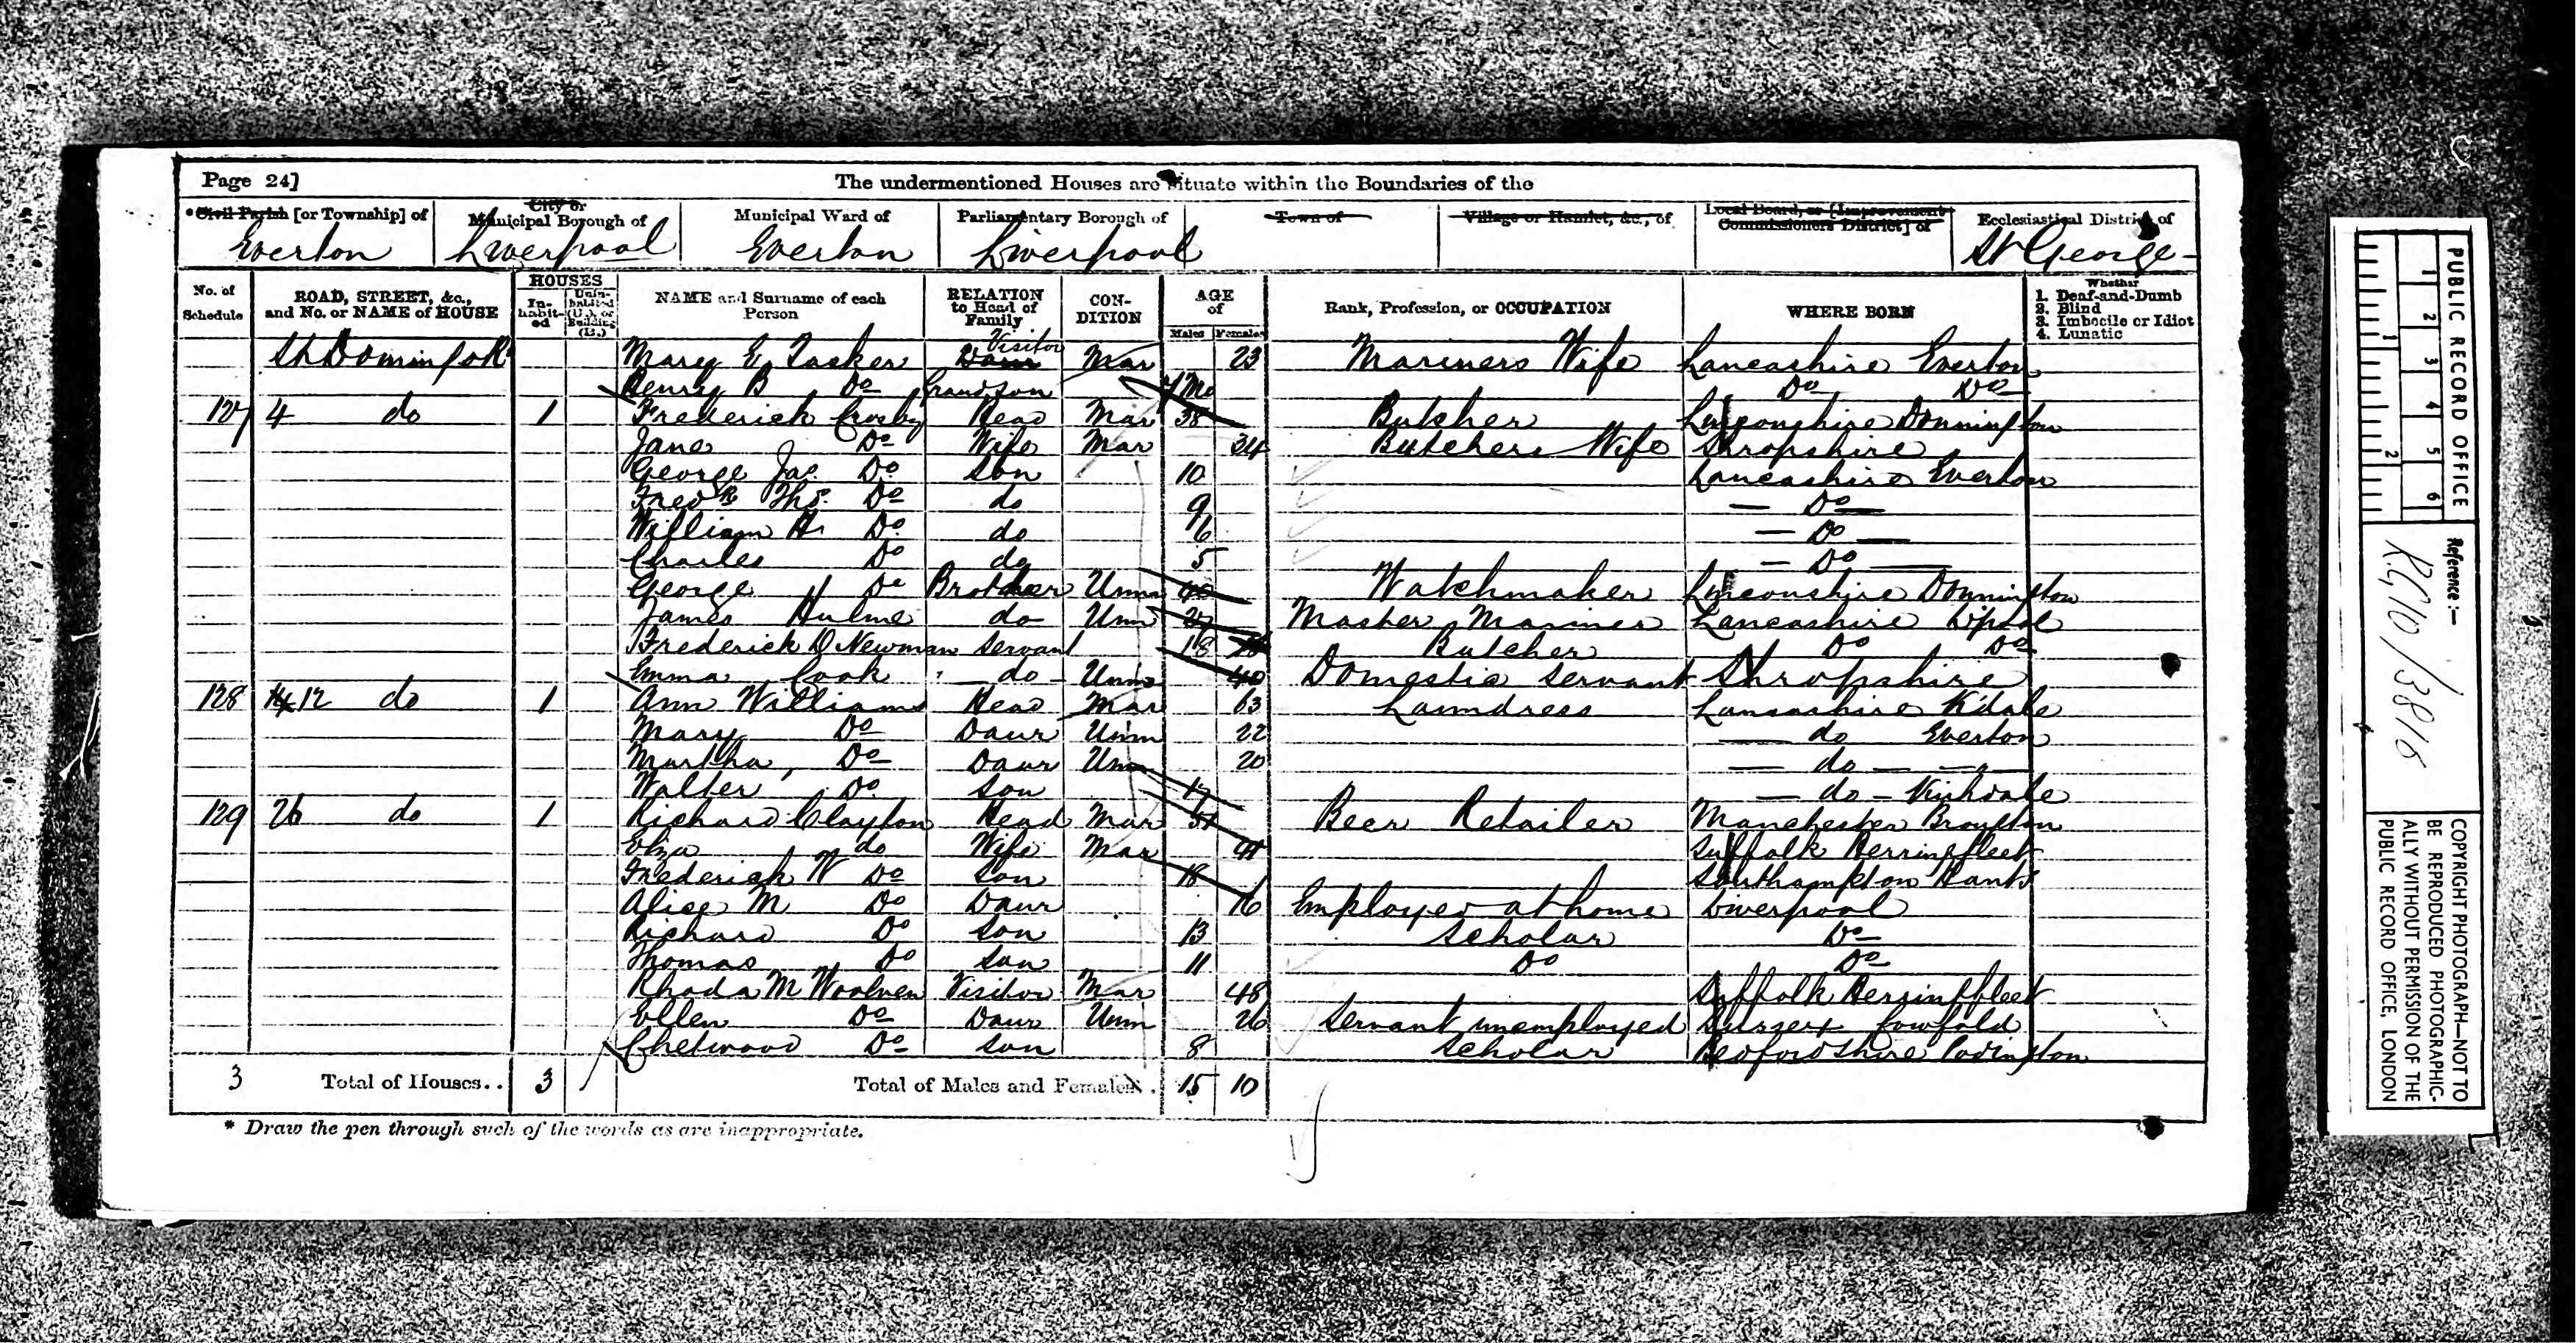 Page 24]
The undermentioned Houses are situate within the Boundaries of the
*Civil Parish [or Township] of
City or Municipal Borough of
Municipal Ward of
Parliamentary Borough of
Town of
Village or Hamlet, &c., of
Local Board, or [Improvement Commissioners District] of
Ecclesiastical District of
Everton Liverpool Everton Liverpool St George
No. of Schedule
ROAD, STREET, &c., and No. or NAME of HOUSE
HOUSES
Inhabited
Uninhabited (U.), or Building (B.)
NAME and Surname of each Person
RELATION to Head of Family
CONDITION
AGE of
Males Females
Rank, Profession, or OCCUPATION
WHERE BORN
Whether
1. Deaf-and-Dumb
2. Blind
3. Imbecile or Idiot
4. Lunatic
St Domingo R Mary E Tasker Daur Visitor Mar 23 Mariners Wife Lancashire Everton
Henry B Do Grandson Mo Do Do
127 4 do 1 Frederick Crosby Head Mar 38 Butcher Lincolnshire Donnington
Jane Do Wife Mar 34 Butchers Wife Shropshire
George Jas. Do Son 10 Lancashire Everton
Fredk Thos. Do do 9 Do
William H. Do do 6 Do
Charles Do do 5 Do
George Do Brother Unm 40 Watchmaker Lincolnshire Donnington
James Hulme do Unm Master Mariner Lancashire L'pool
Frederick D Newman Servant 18 Butcher Do Do
Emma Cook do Unm 40 Domestic Servant Shropshire
128 12 do 1 Ann Williams Head Mar 63 Laundress Lancashire K'dale
Mary Do Daur Unm 22 do Everton
Martha Do Daur Unm 20 do
Walter Do Son 17 do Kirkdale
129 26 do 1 Richard Clayton Head Mar Beer Retailer Manchester Broughton
Eliza do Wife Mar Suffolk Herringfleet
Frederick W Do Son 18 Southampton Hants
Alice M Do Daur 16 Employed at home Liverpool
Richard Do Son 13 Scholar Do
Thomas Do Son 11 Do Do
Rhoda M Woolven Visitor Mar 48 Suffolk Herringfleet
Ellen Do Daur Unm 26 Servant unemployed Sussex Cowfold
Chetwood Do Son 8 Scholar Bedfordshire
3 Total of Houses.. 3 Total of Males and Females.. 15 10
* Draw the pen through such of the words as are inappropriate.
PUBLIC RECORD OFFICE
1 2 3 4 5 6
1 2
Reference:—
RG10/3816
COPYRIGHT PHOTOGRAPH—NOT TO
BE REPRODUCED PHOTOGRAPHIC-
ALLY WITHOUT PERMISSION OF THE
PUBLIC RECORD OFFICE, LONDON